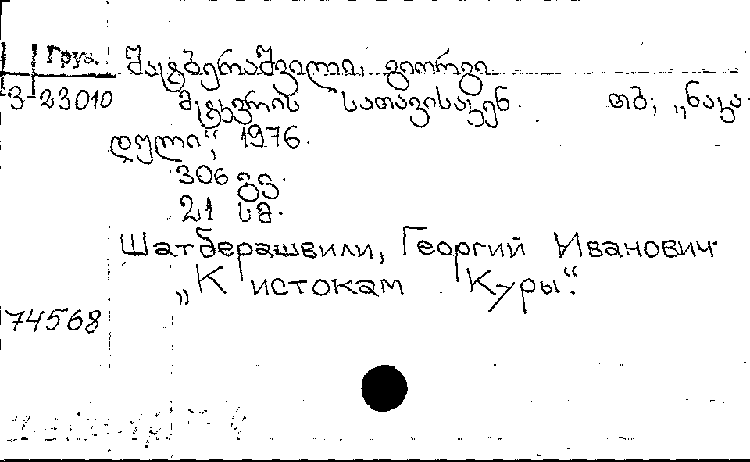 Груз. შატბერაშვილი, გიორგი
3-23010 მტკვრის სათავისაკენ. თბ., „ნაკა-
დული“, 1976.
306 გვ.
21 სმ.
Шатберашвили, Георгий Иванович
„К истокам Куры“.
74568